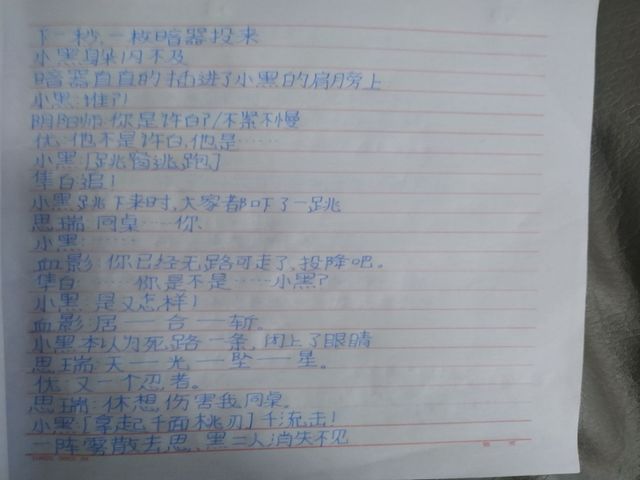 下一秒,一枚暗器投来
小黑躲闪不及
暗器直直的插进了小黑的肩膀上
小黑:谁?!
阴阳师:你是许白?/不紧不慢
优:他不是许白,他是……
小黑:[跳窗逃跑]
隼白:追!
小黑跳下来时,大家都吓了一跳
思瑞:同桌……你
小黑:……
血影:你已经无路可走了,投降吧。
隼白:……你是不是……小黑?
小黑:是又怎样!
血影:居一合一斩。
小黑本以为死路一条,闭上了眼睛
思瑞:天一光一坠一星。
优:又一个忍者。
思瑞:休想伤害我同桌。
小黑:[拿起千面桃刃]千流击!
一阵雾散去思、黑二人消失不见